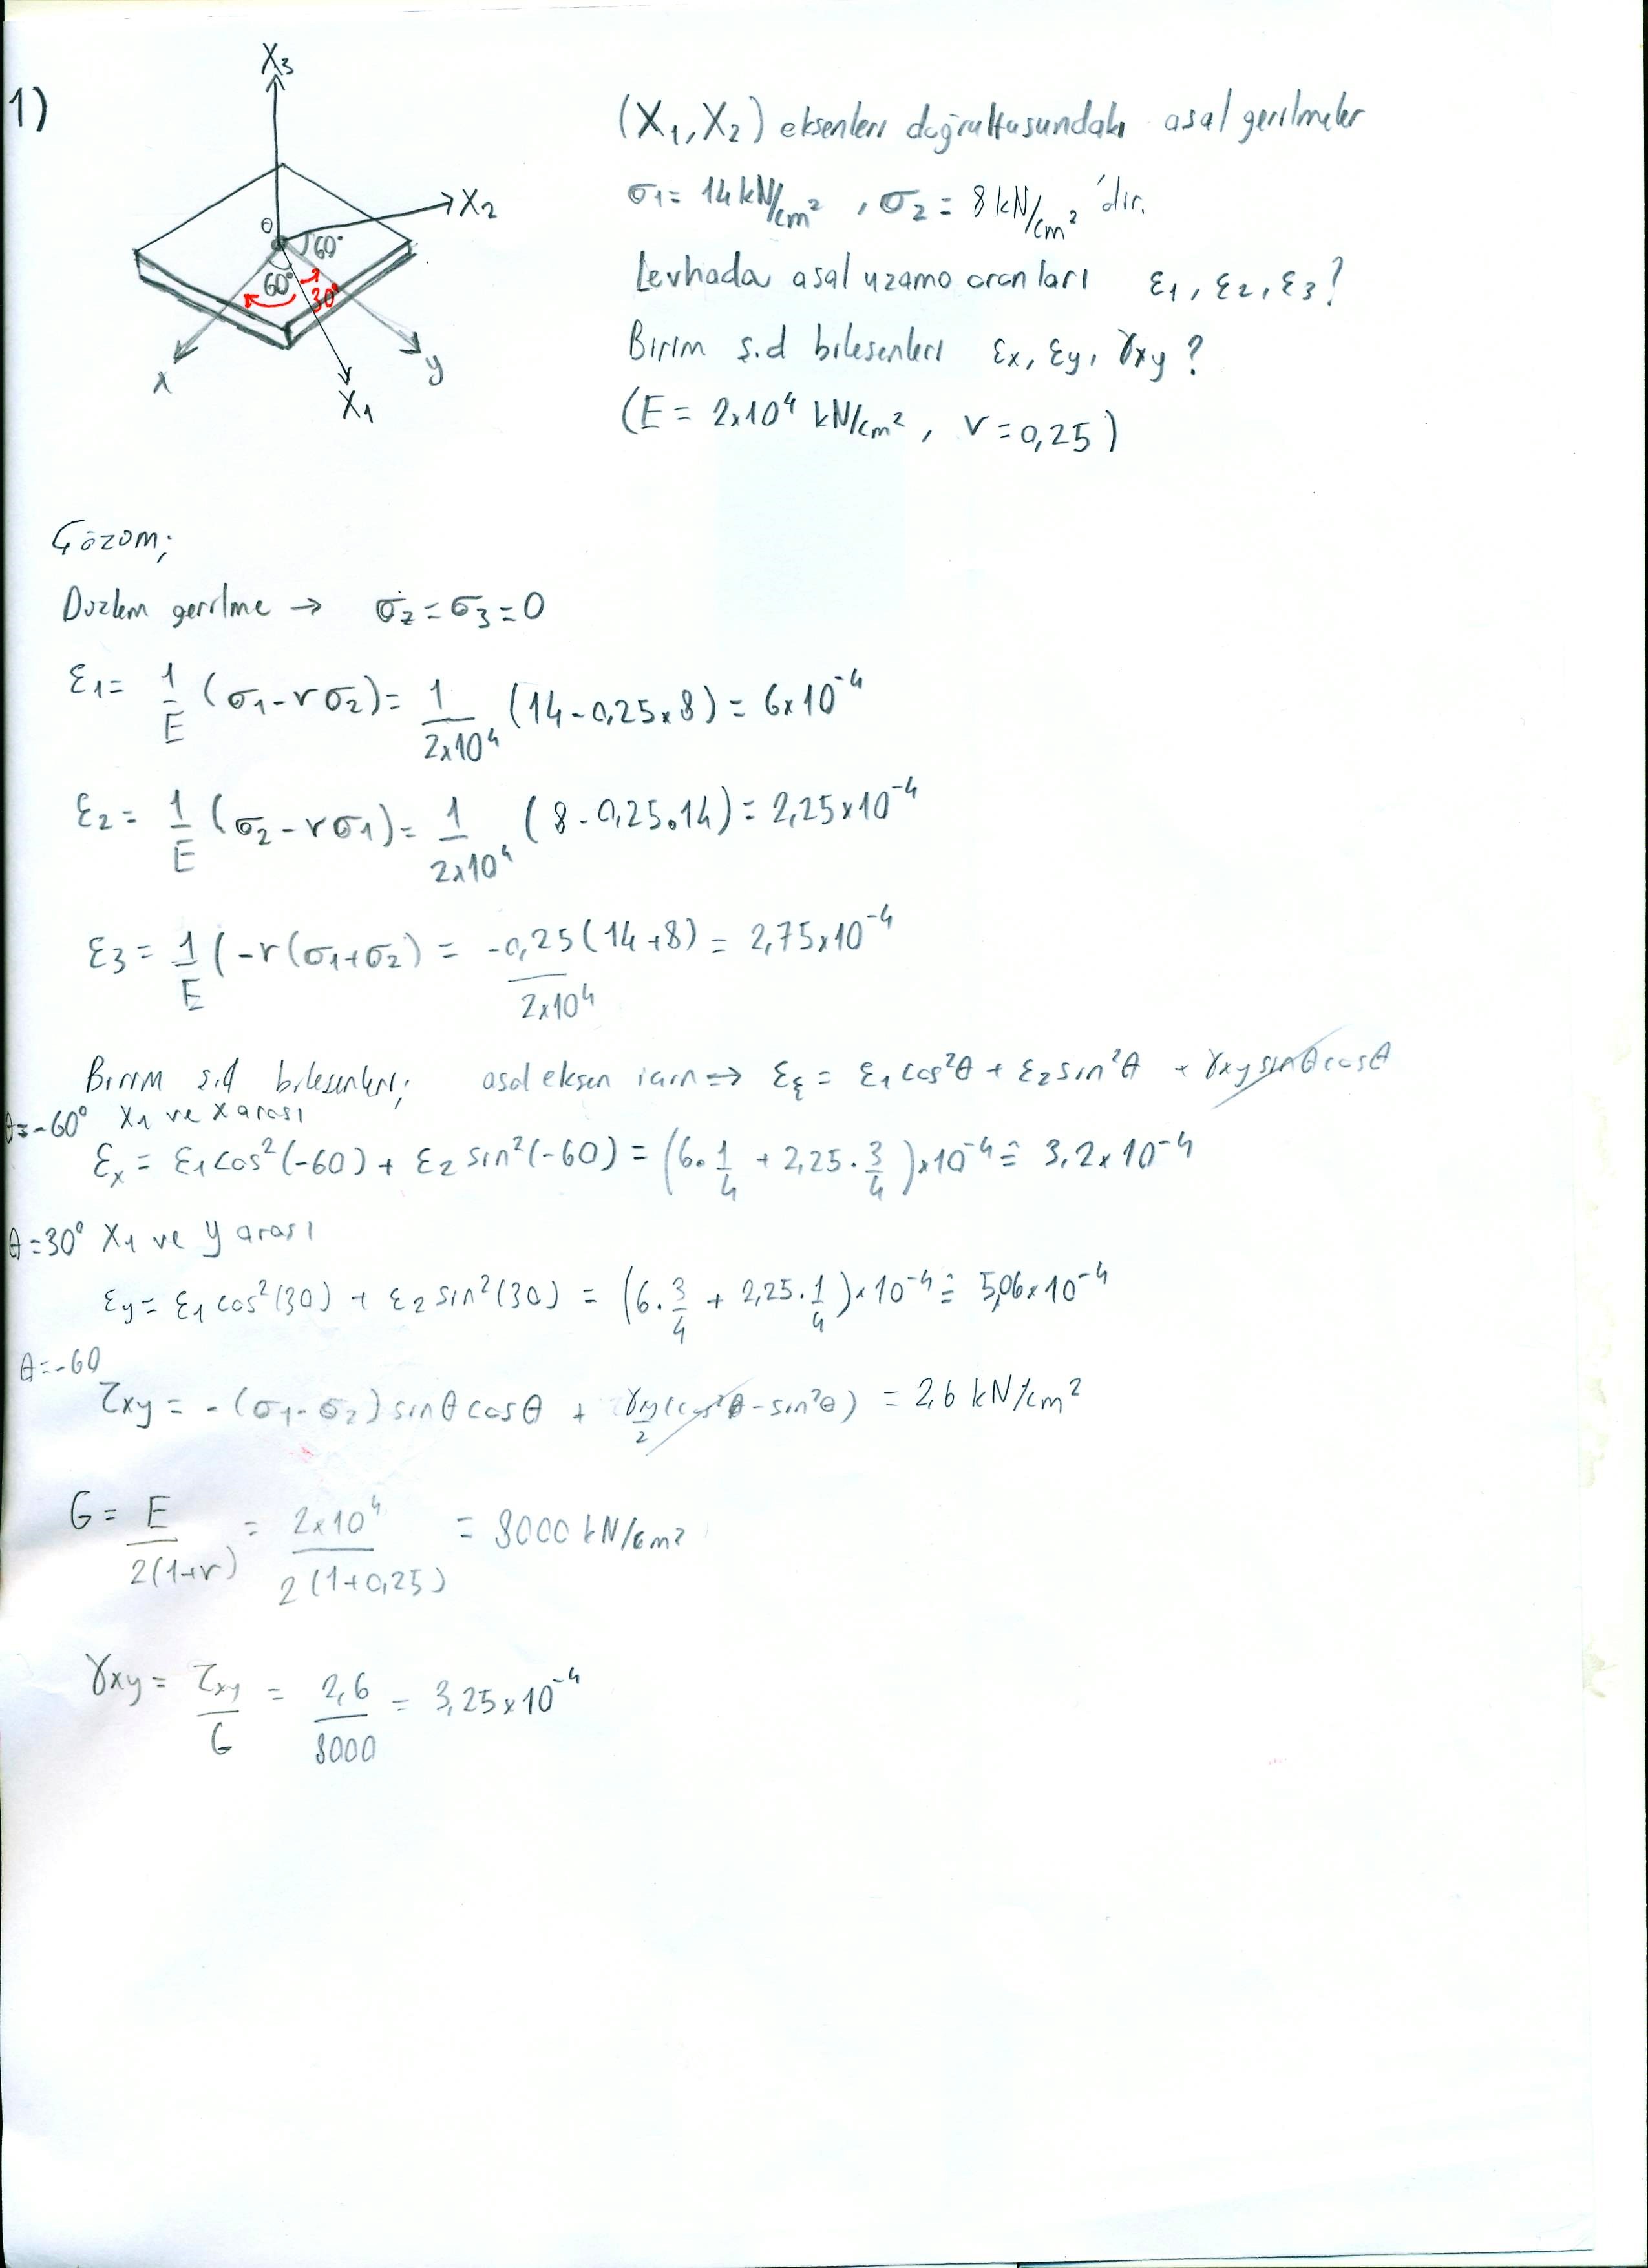 1)
X3
X2
0
60°
60°
30°
x
y
X1
(X1, X2) eksenleri doğrultusundaki asal gerilmeler
σ1 = 14 kN/cm² , σ2 = 8 kN/cm² 'dir.
Levhada asal uzama oranları ε1, ε2, ε3?
Birim ş.d bileşenleri εx, εy, γxy ?
(E = 2x10⁴ kN/cm² , ν = 0,25)
Çözüm;
Düzlem gerilme → σz = σ3 = 0
ε1 = 1/E (σ1 - νσ2) = 1/2x10⁴ (14 - 0,25x8) = 6x10⁻⁴
ε2 = 1/E (σ2 - νσ1) = 1/2x10⁴ (8 - 0,25.14) = 2,25x10⁻⁴
ε3 = 1/E (-ν(σ1+σ2) = -0,25(14+8)/2x10⁴ = 2,75x10⁻⁴
Birim ş.d bileşenleri; asal eksen için ⇒ εξ = ε1 cos²θ + ε2 sin²θ + γxy sinθ cosθ
θ=-60° X1 ve x arası
εx = ε1 cos²(-60) + ε2 sin²(-60) = (6.1/4 + 2,25.3/4)x10⁻⁴ ≅ 3,2x10⁻⁴
θ=30° X1 ve y arası
εy = ε1 cos²(30) + ε2 sin²(30) = (6.3/4 + 2,25.1/4)x10⁻⁴ ≅ 5,06x10⁻⁴
θ=-60
τxy = -(σ1-σ2) sinθ cosθ + γxy/2 (cos²θ - sin²θ) = 2,6 kN/cm²
G = E/2(1+ν) = 2x10⁴/2(1+0,25) = 8000 kN/cm²
γxy = τxy/G = 2,6/8000 = 3,25x10⁻⁴